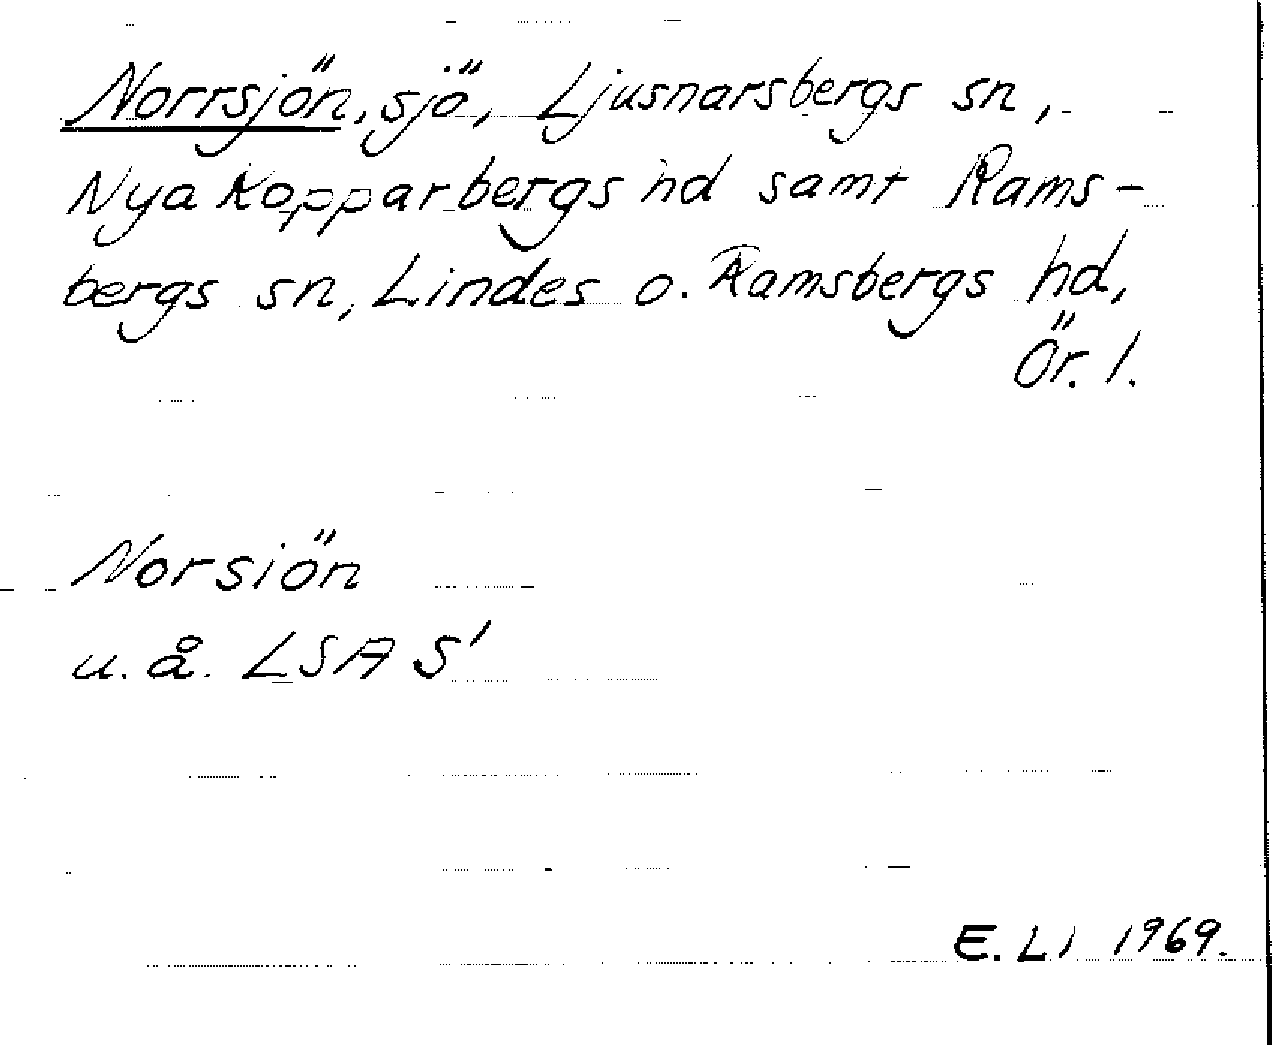 Norrsjön, sjö, Ljusnarsbergs sn,
Nya Kopparbergs hd samt Rams-
bergs sn, Lindes o. Ramsbergs hd,
Ör. l.
Norsiön
u. å. LSA S1
E. Li 1969.